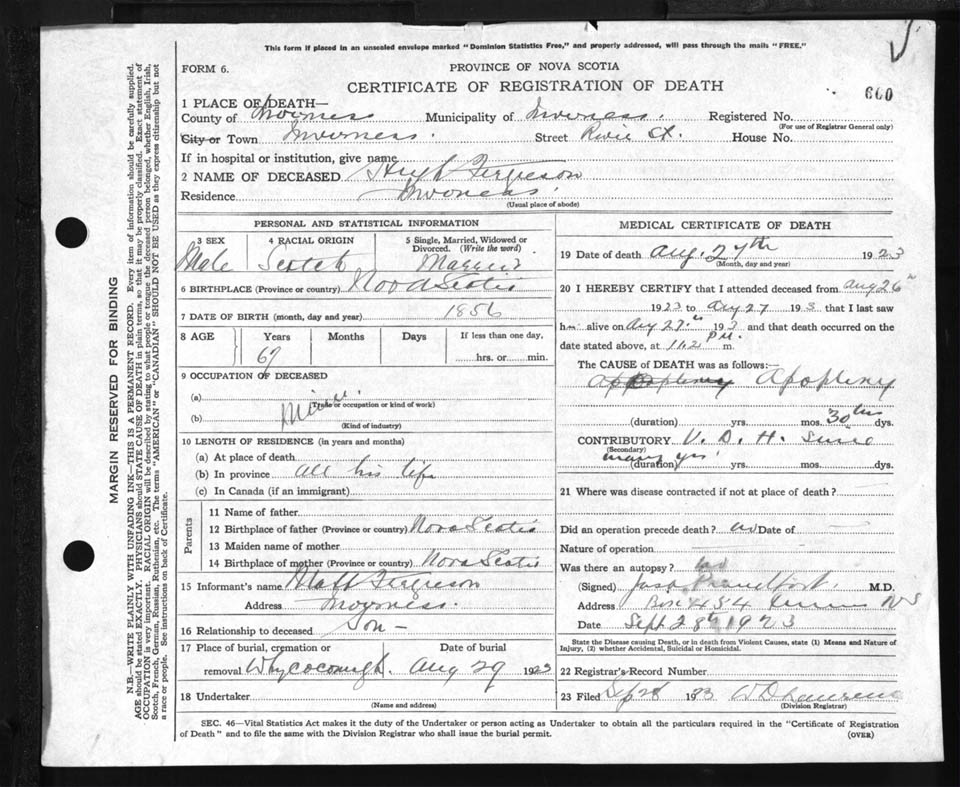 This form if placed in an unsealed envelope marked "Dominion Statistics Free," and properly addressed, will pass through the mails "FREE."
FORM 6.
PROVINCE OF NOVA SCOTIA
CERTIFICATE OF REGISTRATION OF DEATH
660
1 PLACE OF DEATH—
County of Inverness Municipality of Inverness. Registered No.
(For use of Registrar General only)
City or Town Inverness. Street St. House No.
If in hospital or institution, give name
2 NAME OF DECEASED Hugh Ferguson
Residence Inverness.
(Usual place of abode)
PERSONAL AND STATISTICAL INFORMATION
3 SEX 4 RACIAL ORIGIN 5 Single, Married, Widowed or Divorced. (Write the word)
Male Scotch Married
6 BIRTHPLACE (Province or country) Nova Scotia
7 DATE OF BIRTH (month, day and year) 1856
8 AGE Years Months Days If less than one day,
67 hrs. or min.
9 OCCUPATION OF DECEASED
(a)
(Trade or occupation or kind of work)
(b)
(Kind of industry)
10 LENGTH OF RESIDENCE (in years and months)
(a) At place of death
(b) In province All his life
(c) In Canada (if an immigrant)
Parents
11 Name of father
12 Birthplace of father (Province or country) Nova Scotia
13 Maiden name of mother
14 Birthplace of mother (Province or country) Nova Scotia
15 Informant's name Ferguson
Address Inverness.
16 Relationship to deceased Son —
17 Place of burial, cremation or Date of burial
removal Whycocomagh. Aug 29 1923
18 Undertaker
(Name and address)
MEDICAL CERTIFICATE OF DEATH
19 Date of death Aug. 27th 1923
(Month, day and year)
20 I HEREBY CERTIFY that I attended deceased from Aug 26
1923 to Aug 27 193 that I last saw
h alive on Aug 27 193 and that death occurred on the
date stated above, at P.M. m.
The CAUSE OF DEATH was as follows:
Apoplexy
(duration) yrs. mos. 30 hrs dys.
CONTRIBUTORY V. D. H.
(Secondary)
many yrs
(duration) yrs. mos. dys.
21 Where was disease contracted if not at place of death?
Did an operation precede death? no Date of
Nature of operation
Was there an autopsy? no
(Signed) M.D.
Address Box 454 NS
Date Sept 28th 1923
State the Disease causing Death, or in death from Violent Causes, state (1) Means and Nature of
Injury, (2) whether Accidental, Suicidal or Homicidal.
22 Registrar's Record Number
23 Filed Sep 28 1923
(Division Registrar)
SEC. 46—Vital Statistics Act makes it the duty of the Undertaker or person acting as Undertaker to obtain all the particulars required in the "Certificate of Registration
of Death" and to file the same with the Division Registrar who shall issue the burial permit.
(OVER)
MARGIN RESERVED FOR BINDING
N.B.—WRITE PLAINLY WITH UNFADING INK—THIS IS A PERMANENT RECORD. Every item of information should be carefully supplied.
AGE should be stated EXACTLY. PHYSICIANS should STATE CAUSE OF DEATH in plain terms, so that it may be properly classified. Exact statement of
OCCUPATION is very important. RACIAL ORIGIN will be described by stating to what people or tongue the deceased person belonged, whether English, Irish,
Scotch, French, German, Russian, Ruthenian, etc. The terms "AMERICAN" or "CANADIAN" SHOULD NOT BE USED as they express citizenship but not
a race or people. See instructions on back of Certificate.